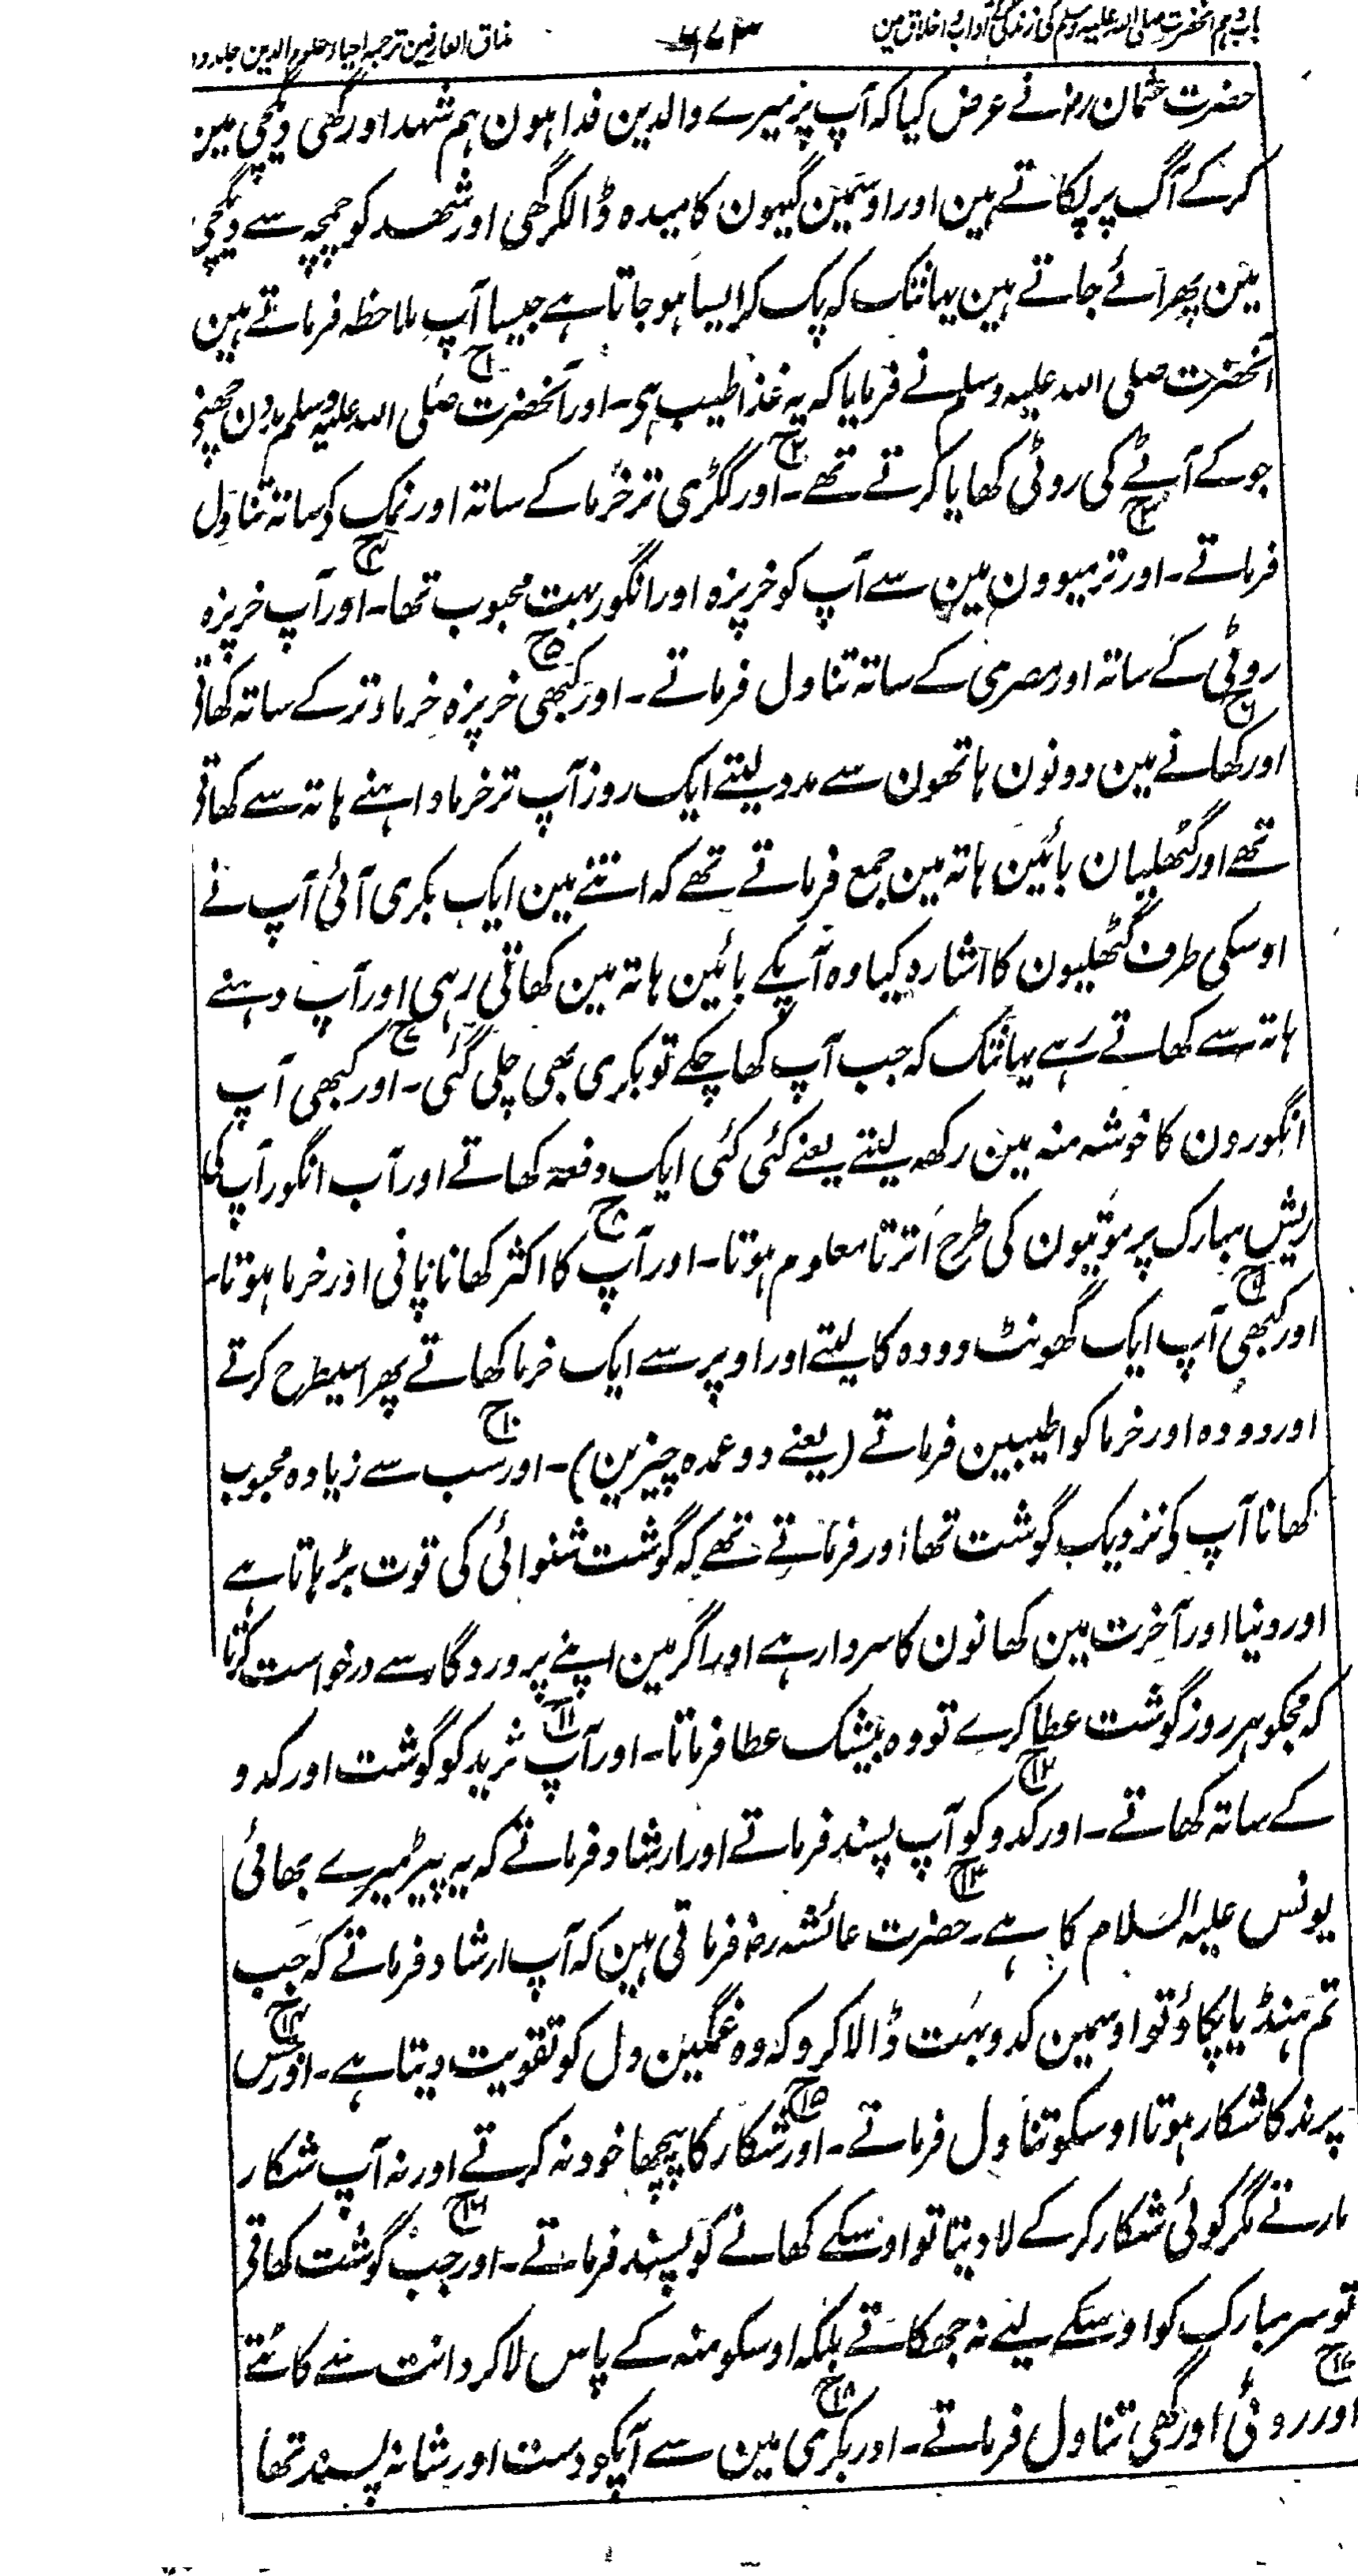 باب دہم آنحضرت صلی اللہ علیہ وسلم کی زندگی کے آداب و اخلاق مین
۴۷۳
مذاق العارفین ترجمہ احیاء علوم الدین جلد دو
حضرت عثمان رضہ نے عرض کیا کہ آپ پر میرے والدین فدا ہون ہم شہد اور گھی دیگچی مین
کرکے آگ پر پکاتے ہین اور اوسمین گیہون کا میدہ ڈالکر گھی اور شہد کو چمچہ سے دیگچی
مین پھرائے جاتے ہین یہانتک کہ پک کر ایسا ہو جاتا ہے جیسا آپ ملاحظہ فرماتے ہین
آنحضرت صلی اللہ علیہ وسلم نے فرمایا کہ یہ غذا طیب ہی۔ اور ۱ح آنحضرت صلی اللہ علیہ وسلم بدون چھنے
جو کے آٹے کی روٹی کھایا کرتے تھے۔ ۲ح اور ککڑی تر خرما کے ساتہ اور نمک کے ساتہ تناول
فرماتے۔ ۳ح اور تر میوون مین سے آپ کو خرپزہ اور انگور بہت محبوب تھا۔ ۴ح اور آپ خرپزہ
روٹی کے ساتہ اور مصری کے ساتہ تناول فرماتے۔ ۵ح اور کبھی خرپزہ خرما و تر کے ساتہ کھاتے
۶ح اور کھانے مین دونون ہاتھون سے مدد لیتے ایک روز آپ تر خرما داہنے ہاتہ سے کھاتے
تھے اور گٹھلیان بائین ہاتہ مین جمع فرماتے تھے کہ اتنے مین ایک بکری آئی آپ نے
اوسکی طرف گٹھلیون کا اشارہ کیا وہ آپکے بائین ہاتہ مین کھاتی رہی اور آپ دہنے
ہاتہ سے کھاتے رہے یہانتک کہ جب آپ کھا چکے تو بکری بھی چلی گئی۔ ۷ح اور کبھی آپ
انگورون کا خوشہ منہ مین رکھہ لیتے یعنے کئی کئی ایک دفعہ کھاتے اور آب انگور آپ کی
ریش مبارک پر موتیون کی طرح اترتا معلوم ہوتا۔ ۸ح اور آپ کا اکثر کھانا پانی اور خرما ہوتا۔
۹ح اور کبھی آپ ایک گھونٹ دودہ کا لیتے اور اوپر سے ایک خرما کھاتے پھر اسیطرح کرتے
اور دودہ اور خرما کو اطیبین فرماتے (یعنے دو عمدہ چیزین)۔ ۱۰ح اور سب سے زیادہ محبوب
کھانا آپ کے نزدیک گوشت تھا اور فرماتے تھے کہ گوشت شنوائی کی قوت بڑہاتا ہے
اور دنیا اور آخرت مین کھانون کا سردار ہے اور اگر مین اپنے پروردگار سے درخواست کرتا
کہ مجکو ہر روز گوشت عطا کرے تو وہ بیشک عطا فرماتا۔ ۱۱ح اور آپ ثرید کو گوشت اور کدو
کے ساتہ کھاتے۔ ۱۲ح اور کدو کو آپ پسند فرماتے اور ارشاد فرماتے کہ یہ پیڑ میرے بھائی
یونس علیہ السلام کا ہے۔ ۱۳ح حضرت عائشہ رضہ فرماتی ہین کہ آپ ارشاد فرماتے کہ جب
تم ہنڈیا پکاؤ تو اوسمین کدو بہت ڈالا کرو کہ وہ غمگین دل کو تقویت دیتا ہے۔ ۱۴ح اور جس
پرند کا شکار ہوتا اوسکو تناول فرماتے۔ ۱۵ح اور شکار کا پیچھا خود نہ کرتے اور نہ آپ شکار
مارتے مگر کوئی شکار کرکے لا دیتا تو اوسکے کھانے کو پسند فرماتے۔ ۱۶ح اور جب گوشت کھاتے
تو سر مبارک کو اوسکے لیے نہ جھکاتے بلکہ اوسکو منہ کے پاس لاکر دانت سے کاٹتے
۱۷ح اور روٹی اور گھی تناول فرماتے۔ ۱۸ح اور بکری مین سے آپکو دست اور شانہ پسند تھا